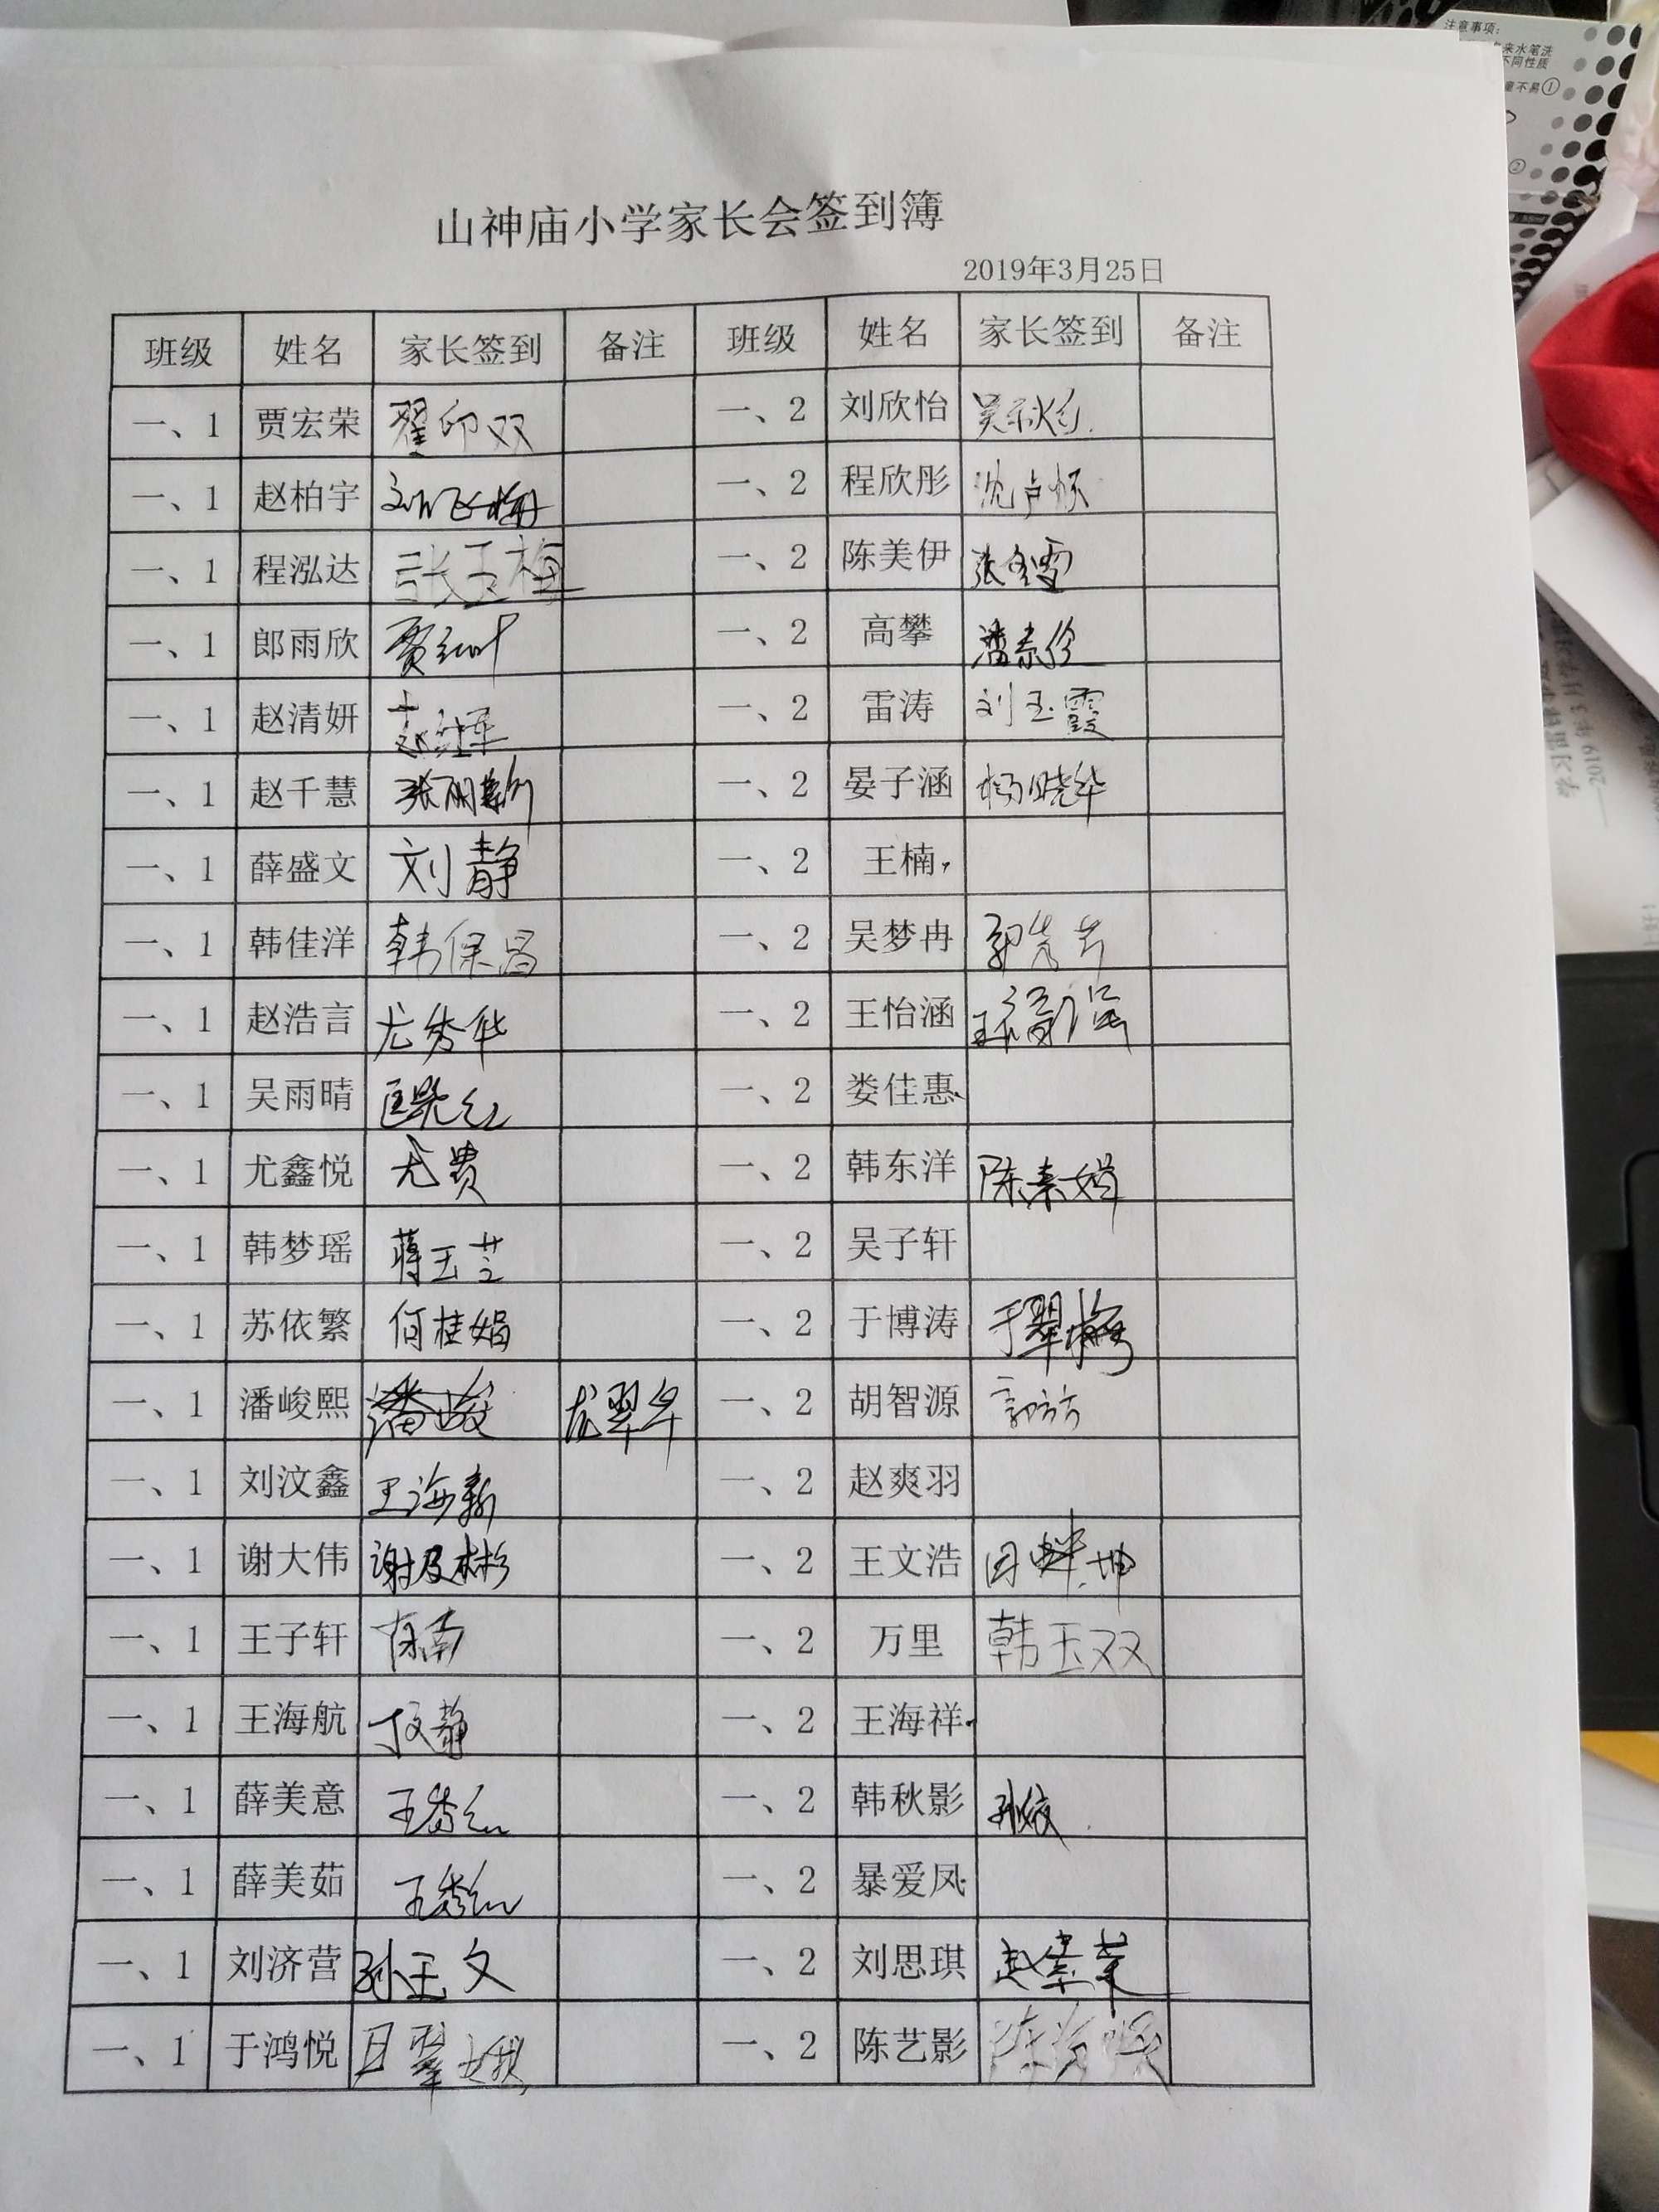 注意事项:
来水笔洗
不同性质
童不易①
②
山神庙小学家长会签到簿
2019年3月25日
班级 姓名 家长签到 备注 班级 姓名 家长签到 备注
一、1 贾宏荣 翟印双 一、2 刘欣怡 吴秋红
一、1 赵柏宇 刘飞梅 一、2 程欣彤
一、1 程泓达 张玉梅 一、2 陈美伊 张冬雪
一、1 郎雨欣 贾红叶 一、2 高攀 潘素伶
一、1 赵清妍 赵红军 一、2 雷涛 刘玉霞
一、1 赵千慧 张丽新 一、2 晏子涵 杨晓华
一、1 薛盛文 刘静 一、2 王楠,
一、1 韩佳洋 韩保昌 一、2 吴梦冉
一、1 赵浩言 尤秀华 一、2 王怡涵
一、1 吴雨晴 一、2 娄佳惠、
一、1 尤鑫悦 尤贵 一、2 韩东洋 陈素娟
一、1 韩梦瑶 蒋玉芝 一、2 吴子轩
一、1 苏依繁 何桂娟 一、2 于博涛 于翠梅
一、1 潘峻熙 潘峻 尤翠华 一、2 胡智源 郭方方
一、1 刘汶鑫 王海新 一、2 赵爽羽
一、1 谢大伟 谢及彬 一、2 王文浩
一、1 王子轩 一、2 万里 韩玉双
一、1 王海航 一、2 王海祥.
一、1 薛美意 王秀红 一、2 韩秋影 孙姣
一、1 薛美茹 王秀红 一、2 暴爱凤.
一、1 刘济营 孙玉文 一、2 刘思琪 赵素荣
一、1 于鸿悦 一、2 陈艺影